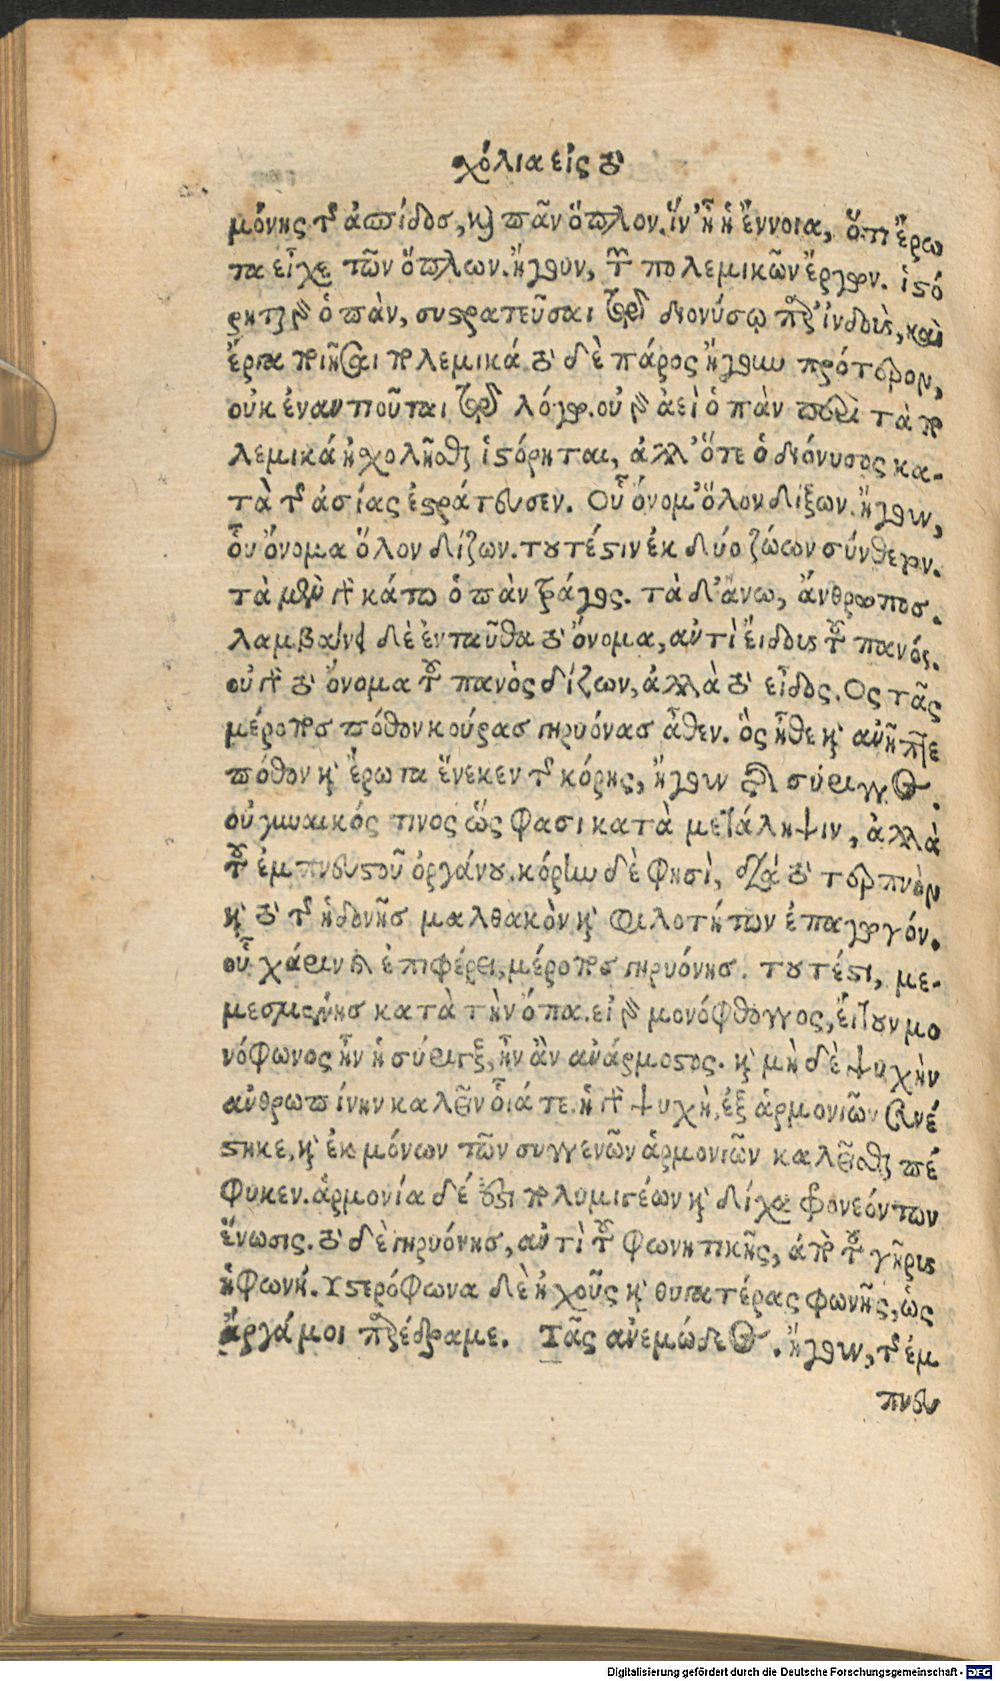 χόλια εἰς τὸ
μόνης τῆς ἀσπίδος, καὶ πᾶν ὅπλον. ἵν' ᾖ ἡ ἔννοια, ὅτι ἔρω
τα εἶχε τῶν ὅπλων. ἤγουν, τῶν πολεμικῶν ἔργων. ἱστό
ρηται γὰρ ὁ πὰν, συστρατεῦσαι τῷ διονύσῳ πρὸς ἰνδοὺς, καὶ
ἔργα ποιῆσαι πολεμικά τὸ δὲ πάρος ἤγουν πρότερον,
οὐκ ἐναντιοῦται τῷ λόγῳ. οὐ γὰρ ἀεὶ ὁ πὰν περὶ τὰ πο
λεμικά ἠσχολῆσθαι ἱστόρηται, ἀλλ' ὅτε ὁ διόνυσος κα-
τὰ τῆς ἀσίας ἐστράτευσεν. Οὗ ὄνομ' ὅλον δίζων. ἤγουν,
οὗ ὄνομα ὅλον δίζων. τουτέστιν ἐκ δύο ζώων σύνθετον.
τὰ μὲν γὰρ κάτω ὁ πὰν τράγος. τὰ δ' ἄνω, ἄνθρωπος.
λαμβάνει δὲ ἐνταῦθα τὸ ὄνομα, αντὶ εἴδους τοῦ πανός.
οὐ γὰρ τὸ ὄνομα τοῦ πανὸς δίζων, ἀλλὰ τὸ εἶδος. Ος τᾶς
μέροπος πόθον κούρας γηρυόνας ἆθεν. ὃς ἦθε καὶ ἀνῆπτε
πόθον καὶ ἔρωτα ἕνεκεν τῆς κόρης, ἤγουν τῆς σύριγγος.
οὐ γυναικός τινος ὥς φασι κατὰ μετάληψιν, ἀλλὰ
τοῦ ἐμπνευστοῦ ὀργάνου. κόρην δὲ φησὶ, διὰ τὸ τερπνὸν
καὶ τὸ τῆς ἡδονῆς μαλθακὸν καὶ φιλοτήτων ἐπαγωγόν.
οὗ χάριν καὶ ἐπιφέρει, μέροπος γηρυόνης. τουτέστι, με-
μερισμένης κατὰ τὴν ὄπα. εἰ γὰρ μονόφθογγος, εἴτουν μο
νόφωνος ἦν ἡ σύριγξ, ἦν ἂν ανάρμοστος. καὶ μὴ δὲ ψυχὴν
ανθρωπίνην καλεῖν οἵα τε. ἡ γὰρ ψυχὴ, ἐξ ἁρμονιῶν συνέ
στηκε, καὶ ἐκ μόνων τῶν συγγενῶν ἁρμονιῶν καλεῖσθαι πέ
φυκεν. ἁρμονία δέ ἐστι πολυμιγέων καὶ δίχα φρονεόντων
ἕνωσις. τὸ δὲ γηρυόνης, αντὶ τοῦ φωνητικῆς, ἀπὸ τοῦ γῆρυς
ἡ φωνή. Υστερόφωνα δὲ ἠχοῦς καὶ θυγατέρας φωνῆς, ὡς
ἄργάμοι προσέδραμε. Τᾶς ανεμώδεος. ἤγουν, τῆς ἐμ
πνευ